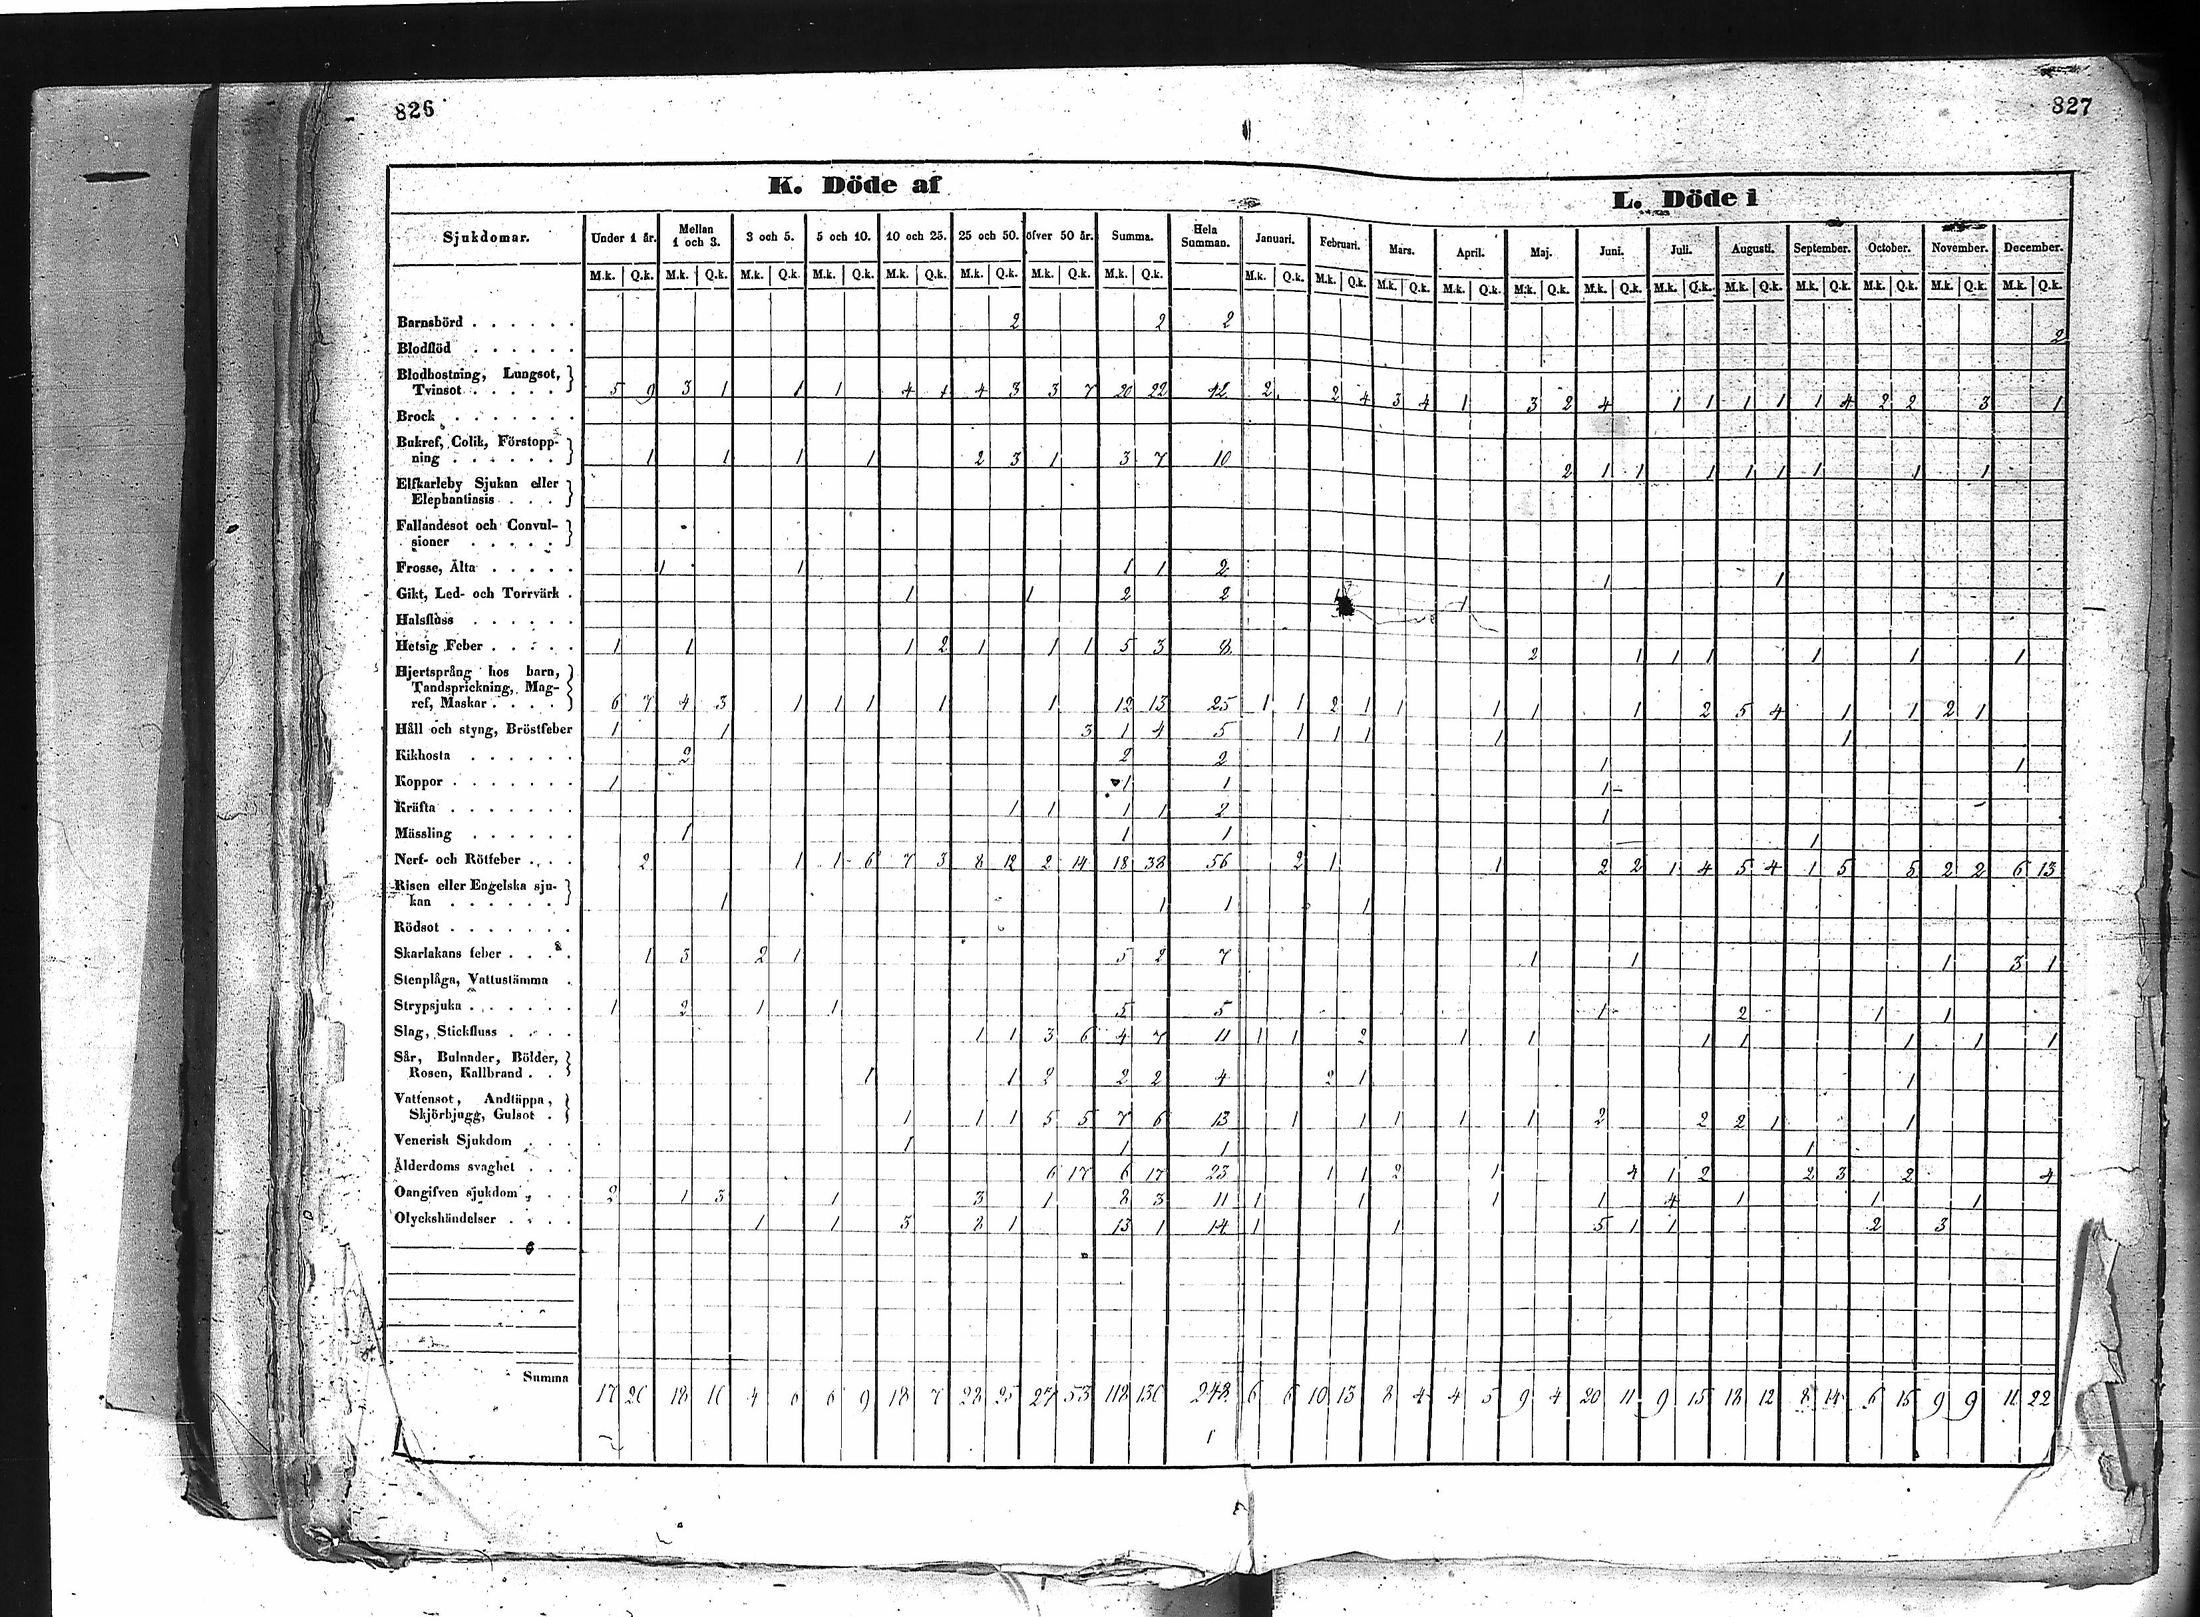 826
827
K. Döde af
L. Döde i
Sjukdomar. Under 1 år. Mellan 1 och 3. 3 och 5. 5 och 10. 10 och 25. 25 och 50. öfver 50 år. Summa. Hela Summan. Januari. Februari. Mars. April. Maj. Juni. Juli. Augusti. September. October. November. December.
M.k. Q.k. M.k. Q.k. M.k. Q.k. M.k. Q.k. M.k. Q.k. M.k. Q.k. M.k. Q.k. M.k. Q.k. M.k. Q.k. M.k. Q.k. M.k. Q.k. M.k. Q.k. M.k. Q.k. M.k. Q.k. M.k. Q.k. M.k. Q.k. M.k. Q.k. M.k. Q.k. M.k. Q.k. M.k. Q.k.
Barnsbörd 2 2 2 2
Blodflöd
Blodhostning, Lungsot,
Tvinsot 5 9 3 1 1 1 4 1 4 3 3 7 20 22 42 2 2 4 3 4 1 3 2 4 1 1 1 1 1 4 2 2 3 1
Brock
Bukref, Colik, Förstopp-
ning 1 1 1 1 2 3 1 3 7 10 2 1 1 1 1 1 1 1 1
Elfkarleby Sjukan eller
Elephantiasis
Fallandesot och Convul-
sioner
Frosse, Älta 1 1 1 1 2 1 1
Gikt, Led- och Torrvärk 1 1 2 2 1 1
Halsfluss
Hetsig Feber 1 1 1 2 1 1 1 5 3 8 2 1 1 1 1 1 1
Hjertsprång hos barn,
Tandsprickning, Mag-
ref, Maskar 6 7 4 3 1 1 1 1 1 12 13 25 1 1 2 1 1 1 1 1 2 5 4 1 1 2 1
Håll och styng, Bröstfeber 1 1 3 1 4 5 1 1 1 1 1
Kikhosta 2 2 2 1 1
Koppor 1 1 1 1
Kräfta 1 1 1 1 2 1
Mässling 1 1 1 1
Nerf- och Rötfeber 2 1 1 6 7 3 8 12 2 14 18 38 56 2 1 1 2 2 1 4 5 4 1 5 5 2 2 6 13
Risen eller Engelska sju-
kan 1 1 1 1
Rödsot
Skarlakans feber 1 3 2 1 5 2 7 1 1 1 3 1
Stenplåga, Vattustämma
Strypsjuka 1 2 1 1 5 5 1 2 1 1
Slag, Stickfluss 1 1 3 6 4 7 11 1 1 2 1 1 1 1 1 1 1
Sår, Bulnader, Bölder,
Rosen, Kallbrand 1 1 2 2 2 4 2 1 1
Vattensot, Andtäppa,
Skjörbjugg, Gulsot 1 1 1 5 5 7 6 13 1 1 1 1 1 2 2 2 1 1
Venerisk Sjukdom 1 1 1 1
Ålderdoms svaghet 6 17 6 17 23 1 1 2 1 4 1 2 2 3 2 4
Oangifven sjukdom 2 1 3 1 3 1 8 3 11 1 1 1 1 4 1 1 1
Olyckshändelser 1 1 3 8 1 13 1 14 1 1 5 1 1 2 3
Summa
17 20 18 10 4 6 6 9 18 7 28 25 27 53 118 130 248 6 6 10 13 8 4 4 5 9 4 20 11 9 15 18 12 8 14 6 15 9 9 11 22